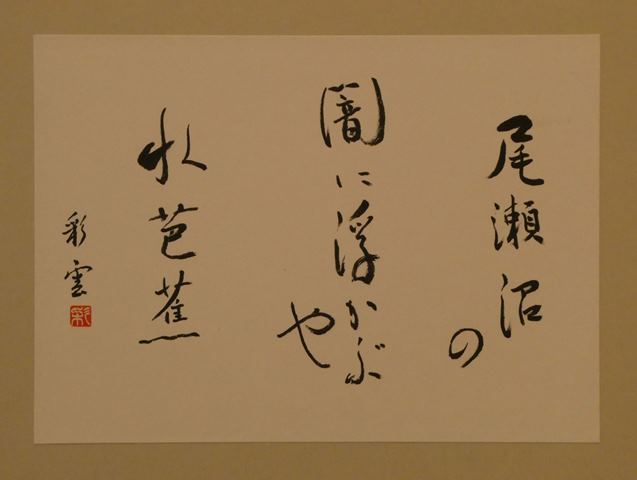 尾瀬沼の
闇に浮かぶや
水芭蕉
彩雲
彩